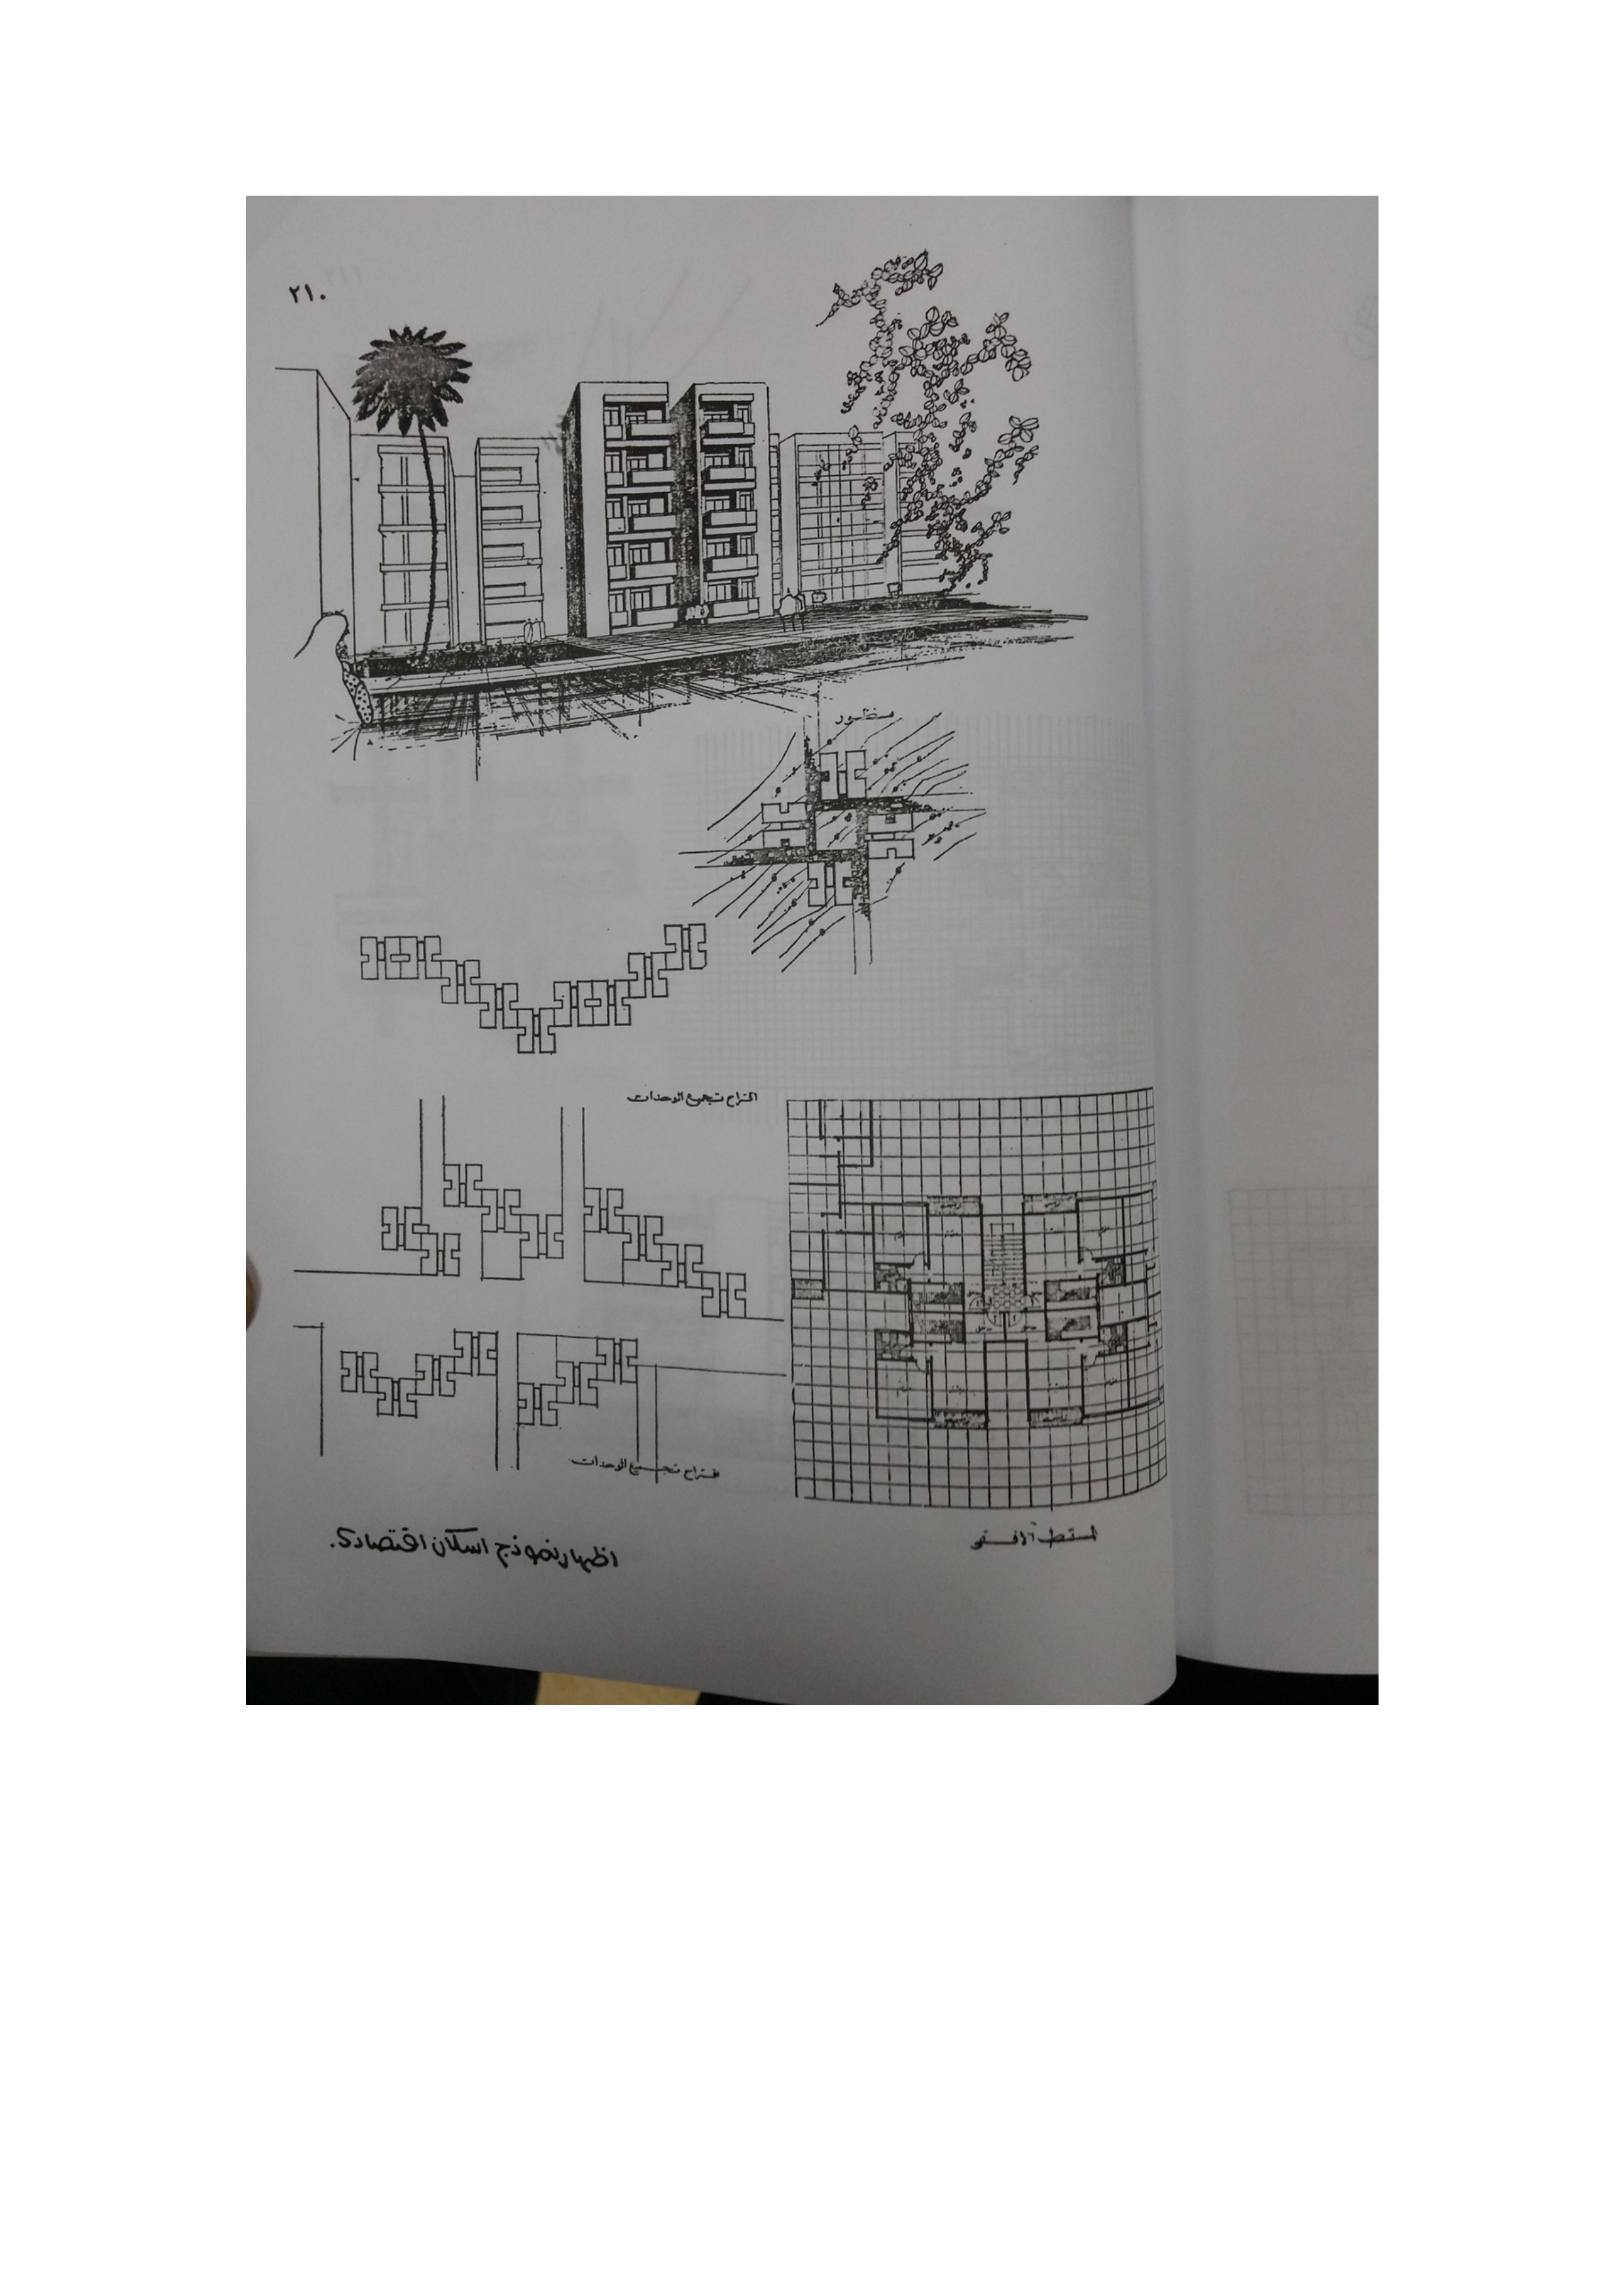 ٢١٠
منظور
اقتراح تجميع الوحدات
اقتراح تجميع الوحدات
المسقط الافقى
اظهار نموذج اسكان اقتصادى.